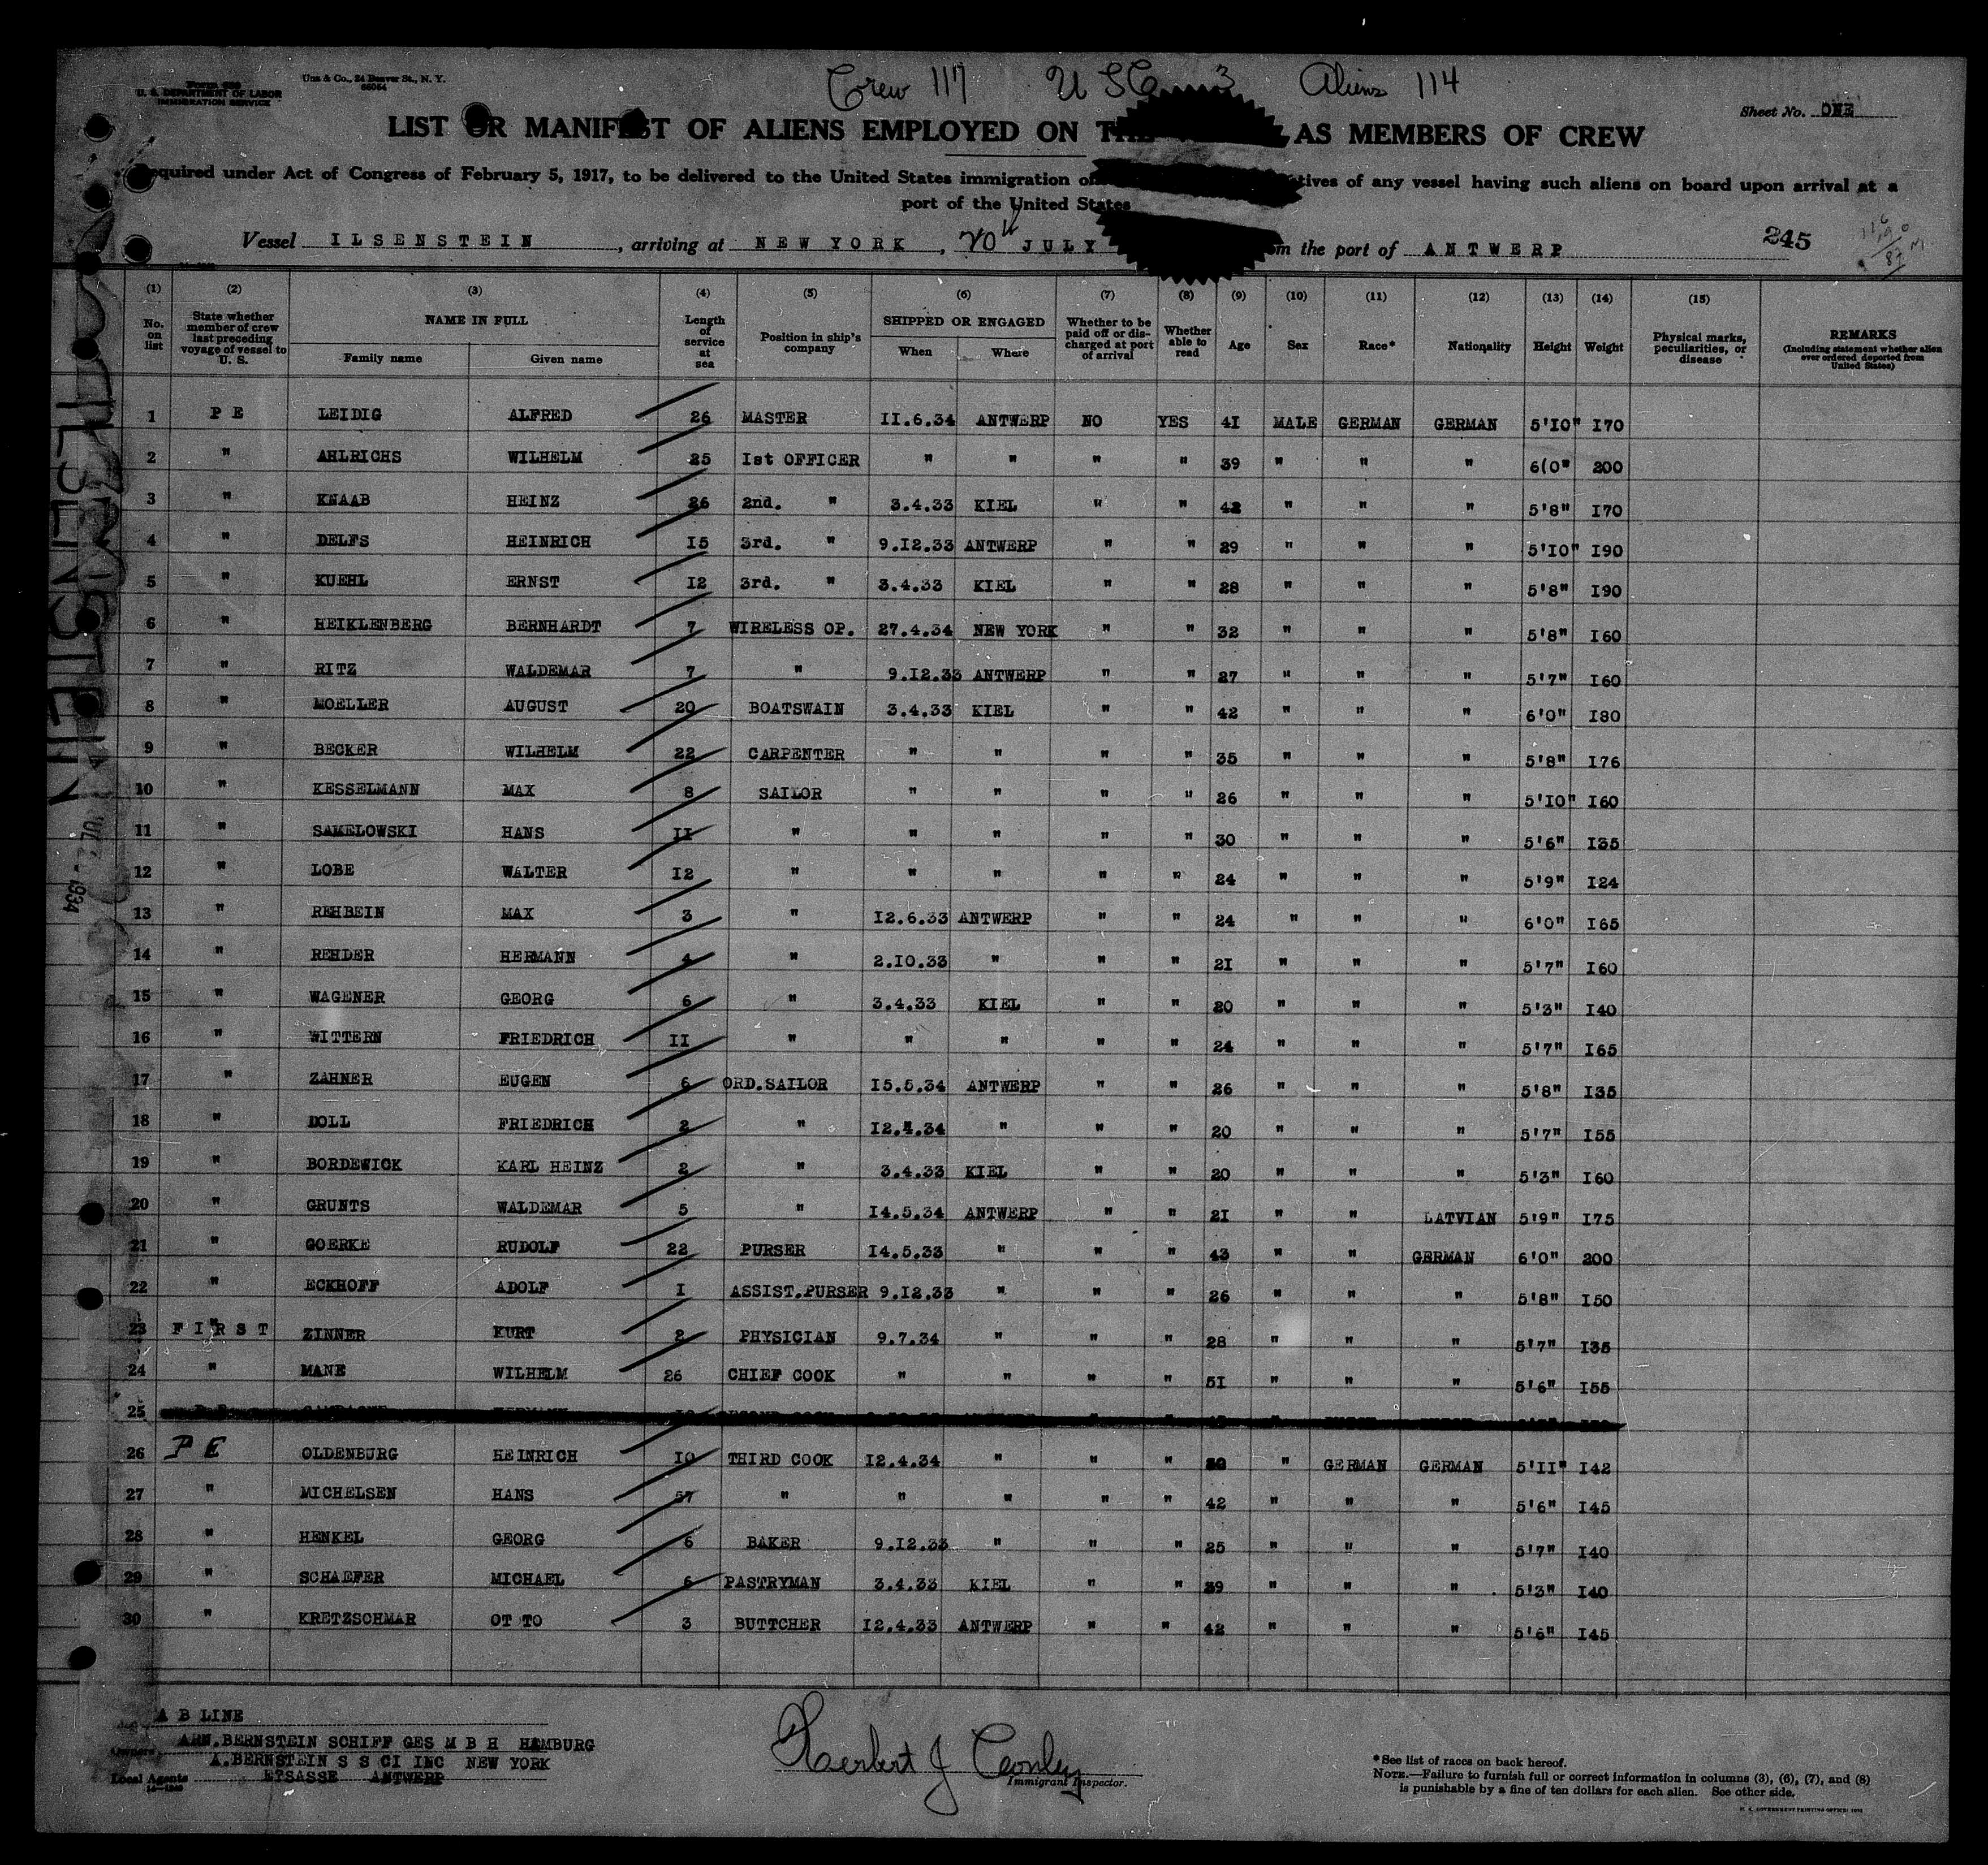 Crew 117 USC 3 Aliens 114
U. S. DEPARTMENT OF LABOR
IMMIGRATION SERVICE
Unz & Co., 24 Beaver St., N. Y.
Sheet No. ONE
LIST OR MANIFEST OF ALIENS EMPLOYED ON THE AS MEMBERS OF CREW
Required under Act of Congress of February 5, 1917, to be delivered to the United States immigration of tives of any vessel having such aliens on board upon arrival at a
port of the United States
Vessel ILSENSTEIN, arriving at NEW YORK, 20th JULY from the port of ANTWERP
245
(1) (2) (3) (4) (5) (6) (7) (8) (9) (10) (11) (12) (13) (14) (15)
No. on list
State whether member of crew last preceding voyage of vessel to U. S.
NAME IN FULL
Family name Given name
Length of service at sea
Position in ship's company
SHIPPED OR ENGAGED
When Where
Whether to be paid off or discharged at port of arrival
Whether able to read
Age Sex Race* Nationality Height Weight
Physical marks, peculiarities, or disease
REMARKS
(Including statement whether alien ever ordered deported from United States)
1 P E LEIDIG ALFRED 26 MASTER II.6.34 ANTWERP NO YES 4I MALE GERMAN GERMAN 5'IO" I70
2 " AHLRICHS WILHELM 25 Ist OFFICER " " " " 39 " " " 6(0" 200
3 " KNAAB HEINZ 26 2nd. " 3.4.33 KIEL " " 42 " " " 5'8" I70
4 " DELFS HEINRICH I5 3rd. " 9.I2.33 ANTWERP " " 29 " " " 5'IO" I90
5 " KUEHL ERNST I2 3rd. " 3.4.33 KIEL " " 28 " " " 5'8" I90
6 " HEIKLENBERG BERNHARDT 7 WIRELESS OP. 27.4.34 NEW YORK " " 32 " " " 5'8" I60
7 " RITZ WALDEMAR 7 " 9.I2.33 ANTWERP " " 27 " " " 5'7" I60
8 " MOELLER AUGUST 20 BOATSWAIN 3.4.33 KIEL " " 42 " " " 6'0" I80
9 " BECKER WILHELM 22 CARPENTER " " " " 35 " " " 5'8" I76
10 " KESSELMANN MAX 8 SAILOR " " " " 26 " " " 5'IO" I60
11 " SAMELOWSKI HANS II " " " " " 30 " " " 5'6" I35
12 " LOBE WALTER I2 " " " " " 24 " " " 5'9" I24
13 " REHBEIN MAX 3 " I2.6.33 ANTWERP " " 24 " " " 6'0" I65
14 " REHDER HERMANN 4 " 2.I0.33 " " " 2I " " " 5'7" I60
15 " WAGENER GEORG 6 " 3.4.33 KIEL " " 20 " " " 5'3" I40
16 " WITTERN FRIEDRICH II " " " " " 24 " " " 5'7" I65
17 " ZAHNER EUGEN 6 ORD.SAILOR I5.5.34 ANTWERP " " 26 " " " 5'8" I35
18 " DOLL FRIEDRICH 2 " I2.4.34 " " " 20 " " " 5'7" I55
19 " BORDEWICK KARL HEINZ 2 " 3.4.33 KIEL " " 20 " " " 5'3" I60
20 " GRUNTS WALDEMAR 5 " I4.5.34 ANTWERP " " 2I " " LATVIAN 5'9" I75
21 " GOERKE RUDOLF 22 PURSER I4.5.33 " " " 43 " " GERMAN 6'0" 200
22 " ECKHOFF ADOLF I ASSIST.PURSER 9.I2.33 " " " 26 " " " 5'8" I50
23 FIRST ZINNER KURT 2 PHYSICIAN 9.7.34 " " " 28 " " " 5'7" I35
24 " MANE WILHELM 26 CHIEF COOK " " " " 5I " " " 5'6" I55
25
26 P E OLDENBURG HEINRICH IO THIRD COOK I2.4.34 " " " " GERMAN GERMAN 5'II" I42
27 " MICHELSEN HANS " " " " " 42 " " " 5'6" I45
28 " HENKEL GEORG 6 BAKER 9.I2.33 " " " 25 " " " 5'7" I40
29 " SCHAEFER MICHAEL 6 PASTRYMAN 3.4.33 KIEL " " 39 " " " 5'3" I40
30 " KRETZSCHMAR OT TO 3 BUTTCHER I2.4.33 ANTWERP " " 42 " " " 5'6" I45
ILSENSTEIN
1934
A B LINE
Owners ARN.BERNSTEIN SCHIFF GES M B H HAMBURG
A.BERNSTEIN S S CI INC NEW YORK
Local Agents ANTWERP
Herbert J Conley
Immigrant Inspector.
*See list of races on back hereof.
NOTE.—Failure to furnish full or correct information in columns (3), (6), (7), and (8)
is punishable by a fine of ten dollars for each alien. See other side.
U. S. GOVERNMENT PRINTING OFFICE: